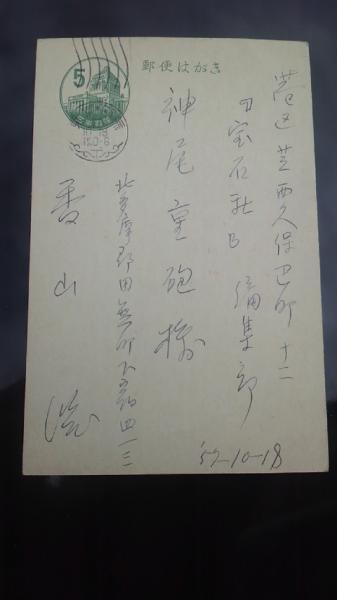 郵便はがき
5
港区芝西久保巴町十二
宝石社
編集部
神尾重砲様
北多摩郡田無町
四一三
香山滋
'57-10-18